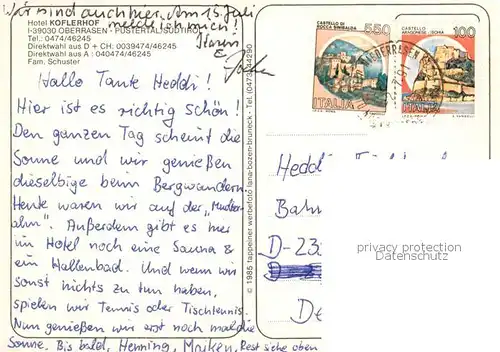 Wir sind auch hier. Am 15. Juli
melde ich mich!
Hotel KOFLERHOF
I-39030 OBERRASEN - PUSTERTAL/SÜDTIROL
Tel.: 0474/46245
Direktwahl aus D + CH: 0039474/46245
Direktwahl aus A: 040474/46245
Fam. Schuster
Hallo Tante Heddi!
Hier ist es richtig schön!
Den ganzen Tag scheint die
Sonne und wir genießen
dieselbige beim Bergwandern.
Heute waren wir auf der
alm". Außerdem gibt es hier
im Hotel noch eine Sauna &
ein Hallenbad. Und wenn wir
sonst nichts zu tun haben,
spielen wir Tennis oder Tischtennis.
Nun genießen wir erst noch mal die
Sonne. Bis bald, Henning, Maiken, Rest siehe oben
© 1985 tappeiner werbefoto lana-bozen-bruneck - Tel. 0473
CASTELLO DI
ROCCA SINIBALDA
550
ITALIA
CASTELLO
ARAGONESE - ISCHIA
100
ITALIA
Heddi
Bahn
D-23
De
phproxyimages.copyright